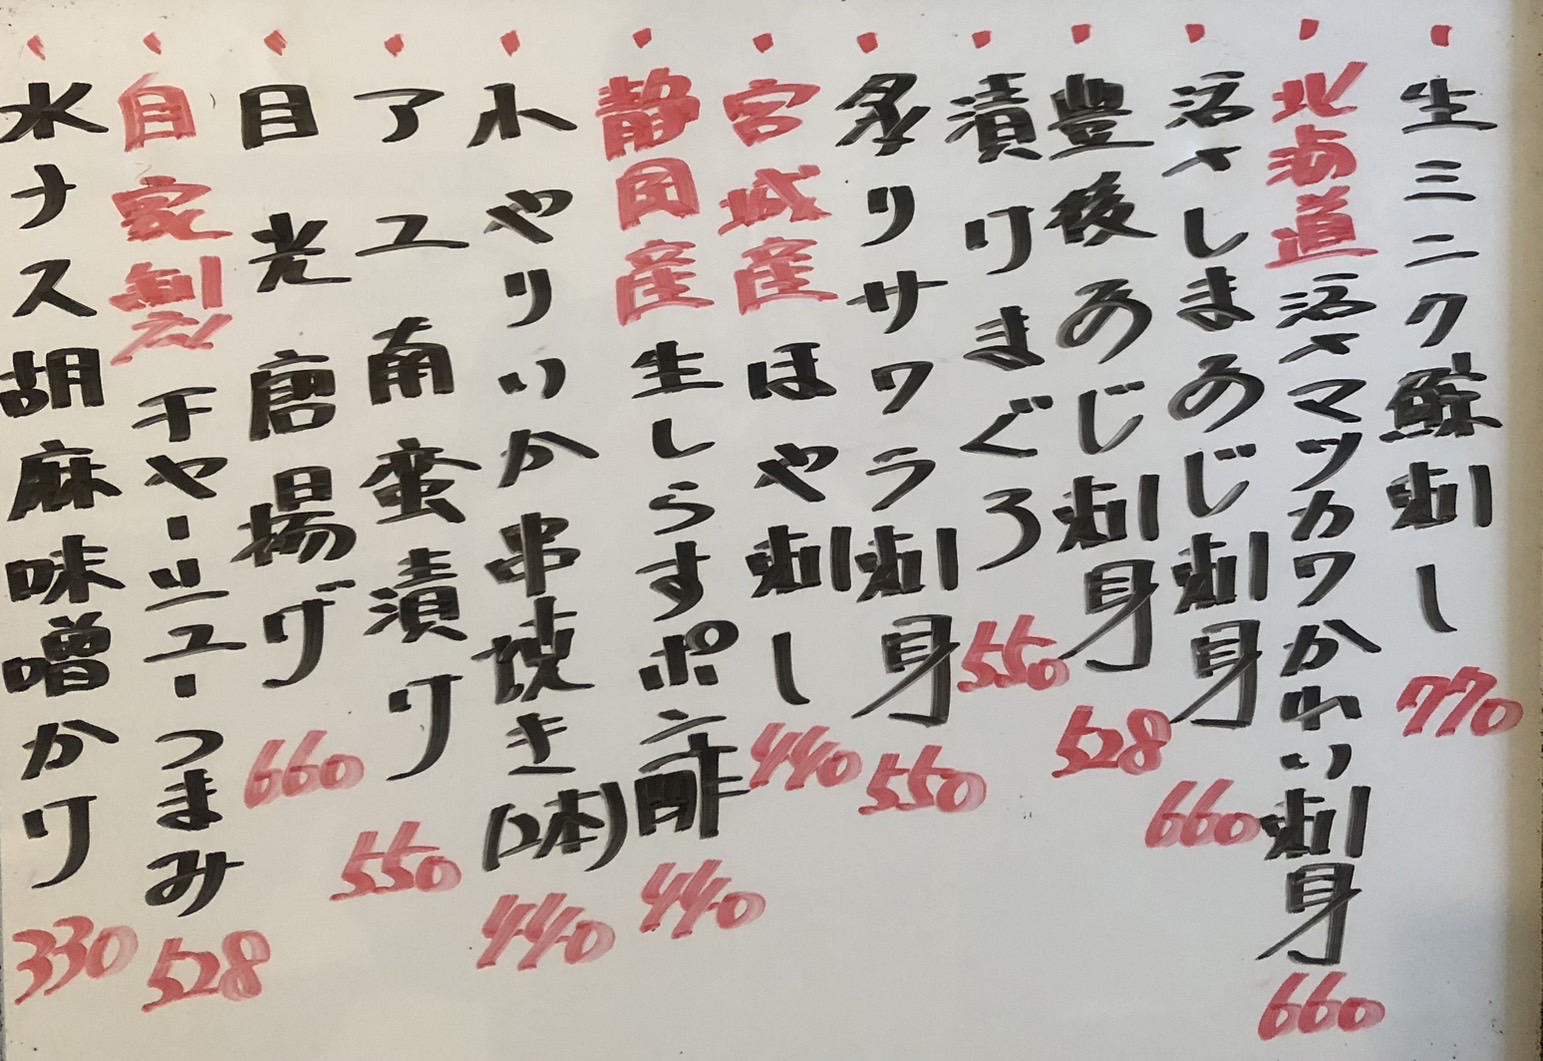 ・生ミンク鯨刺し 770
・北海道活〆マツカワかれい刺身 660
・活〆しまあじ刺身 660
・豊後あじ刺身 528
・漬けまぐろ 550
・炙りサワラ刺身 550
・宮城産ほや刺し 440
・静岡産生しらすポン酢 440
・小やりいか串焼き(2本) 440
・アユ南蛮漬け 550
・目光唐揚げ 660
・自家製チャーシューつまみ 528
・水ナス胡麻味噌かけ 330